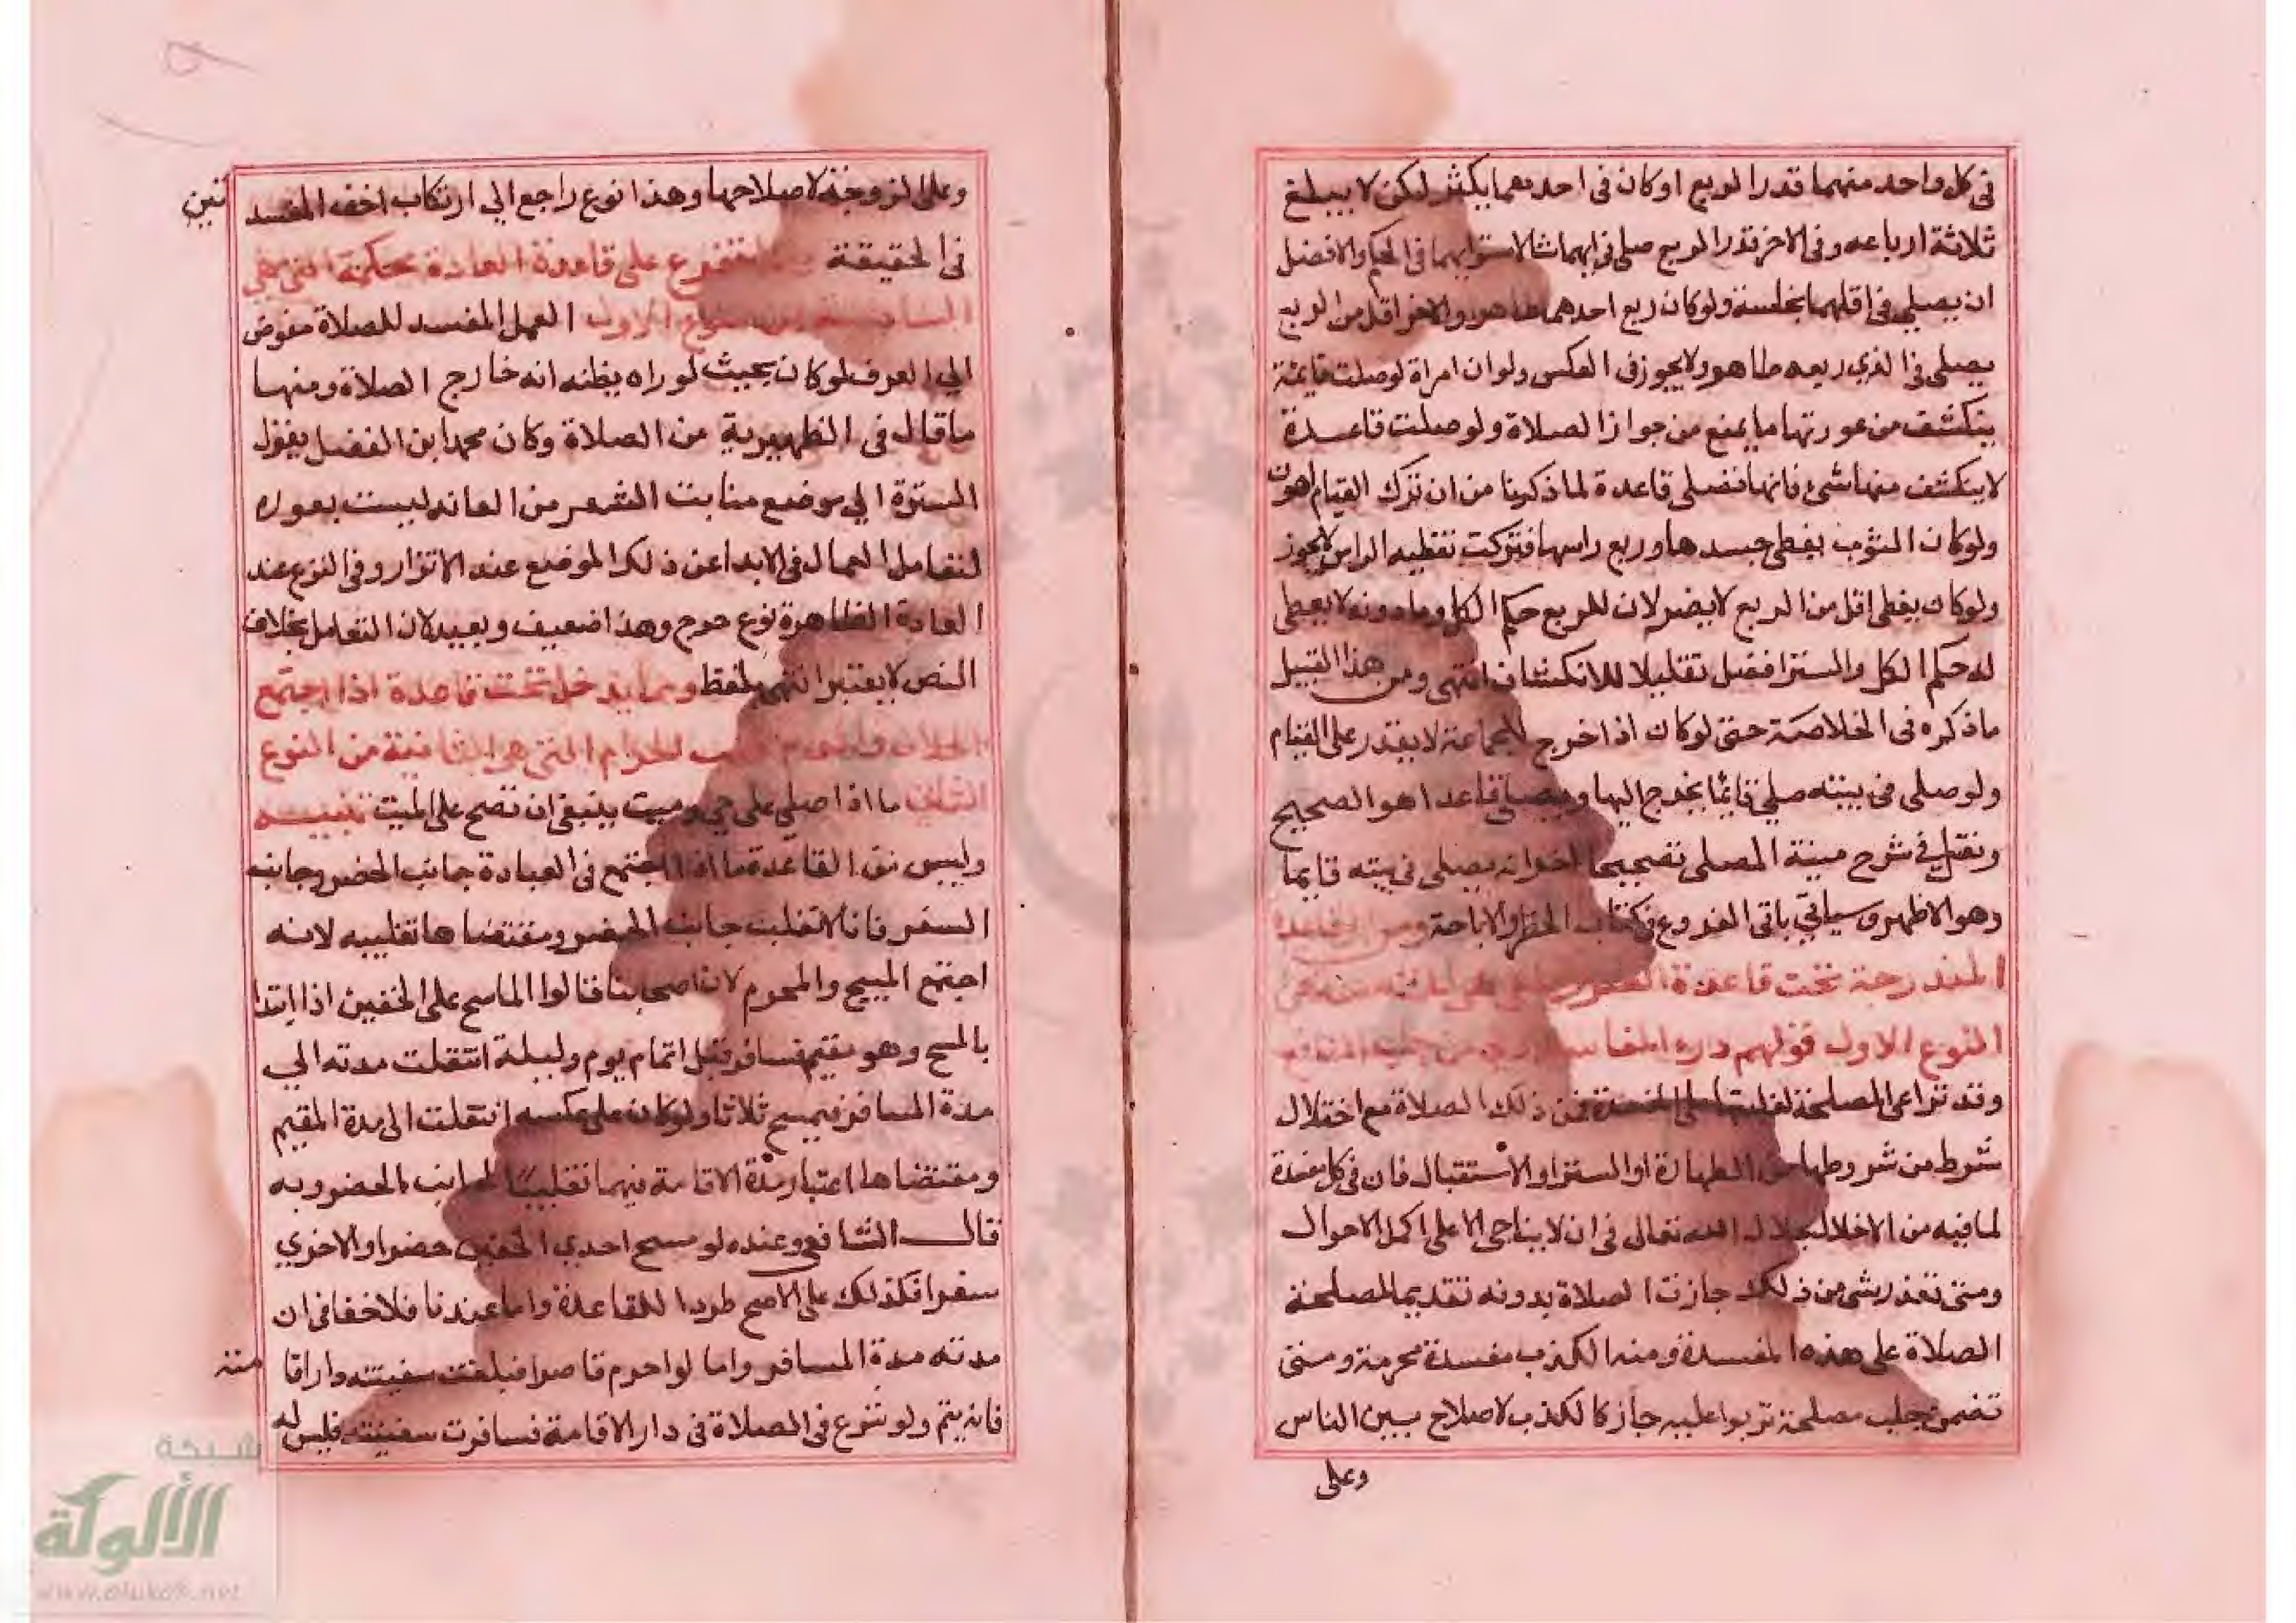 في كل واحد منهما قدر الربع او كان في احدهما يكثر لكن لا يبلغ
ثلاثة ارباعه وفي الاخر قدر الربع صلى في ايهما شا لاستوايهما في الحكم والافضل
ان يصلي في اقلهما نجاسة ولو كان ربع احدهما طاهر والاخر اقل من الربع
يصلي في الذي ربعه طاهر ولا يجوز في العكس ولو ان امراة لو صلت قايمة
ينكشف من عورتها ما يمنع من جواز الصلاة ولو صلت قاعدة
لا ينكشف منها شيء فانها تصلي قاعدة لما ذكرنا من ان ترك القيام اهون
ولو كان الثوب يغطي جسدها وربع راسها فتركت تغطيه الراس لا يجوز
ولو كان يغطي اقل من الربع لا يضر لان للربع حكم الكل وما دونه لا يعطى
له حكم الكل والستر افضل تقليلا للانكشاف انتهى ومن هذا القبيل
ما ذكره في الخلاصة حتى لو كان اذا خرج للجماعة لا يقدر على القيام
ولو صلى في بيته صلى قائما يخرج اليها ويصلي قاعدا هو الصحيح
ونقل في شرح منية المصلي تصحيحا اخر انه يصلي في بيته قايما
وهو الاظهر وسياتي باقي الفروع في كتاب الحظر والاباحة ومن القاعدة
المندرجة تحت قاعدة الضرر
النوع الاول قولهم درء المفاسد اولى من جلب المنافع
وقد تراعى المصلحة لغلبتها على المفسدة فمن ذلك الصلاة مع اختلال
شرط من شروطها من الطهارة او الستر او الاستقبال فان في كل مفسدة
لما فيه من الاخلال بجلال الله تعالى في ان لا يناجى الا على اكمل الاحوال
ومتى تعذر شي من ذلك جازت الصلاة بدونه تقديما لمصلحة
الصلاة على هذه المفسدة ومنه الكذب مفسدة محرمة ومتى
تضمن جلب مصلحة تربوا عليه جاز كالكذب لاصلاح بين الناس
وعلى
وعلى الزوجة لاصلاحها وهذا نوع راجع الى ارتكاب اخف المفسد
تين
في الحقيقة يتفرع على قاعدة العادة محكمة التي هي
السادسة من النوع الاول العمل المفسد للصلاة مفوض
الي العرف لو كان بحيث لو راه يظنه انه خارج الصلاة ومنها
ما قال في الظهيرية من الصلاة وكان محمد ابن الفضل يقول
السترة الي موضع منابت الشعر من العانه ليست بعورة
لتعامل العمال في الابدا عن ذلك الموضع عند الاتزار وفي النزع عند
العادة الظاهرة نوع حرج وهذا ضعيف وبعيد لان التعامل بخلاف
النص لا يعتبر انتهى بلفظ ومما يدخل تحت قاعدة اذا اجتمع
الحلال والحرام غلب الحرام التي هي الثانية من النوع
الثاني ما اذا صلي على حي وميت ينبغي ان تصح على الميت تنبيه
وليس من القاعدة ما اذا اجتمع في العبادة جانب الحضر وجانب
السفر فانا لا نغلب جانب الحضر ومقتضاها تغليبه لانه
اجتمع المبيح والمحرم لان اصحابنا قالوا الماسح على الخفين اذا ابتدا
بالمسح وهو مقيم فسافر قبل اتمام يوم وليلة انتقلت مدته الي
مدة المسافر فيمسح ثلاثا ولو كان على عكسه انتقلت الى مدة المقيم
ومقتضاها اعتبار مدة الاقامة فيهما تغليبا لجانب الحضر وبه
قال الشافعي وعنده لو مسح احدي الخفين حضرا والاخري
سفرا فكذلك على الاصح طردا للقاعدة واما عندنا فلا خفا في ان
مدته مدة المسافر واما لو احرم قاصرا فبلغت سفينته دار اقا
مته
فانه يتم ولو شرع في الصلاة في دار الاقامة فسافرت سفينته فليس له
شبكة
الألوكة
www.alukah.net